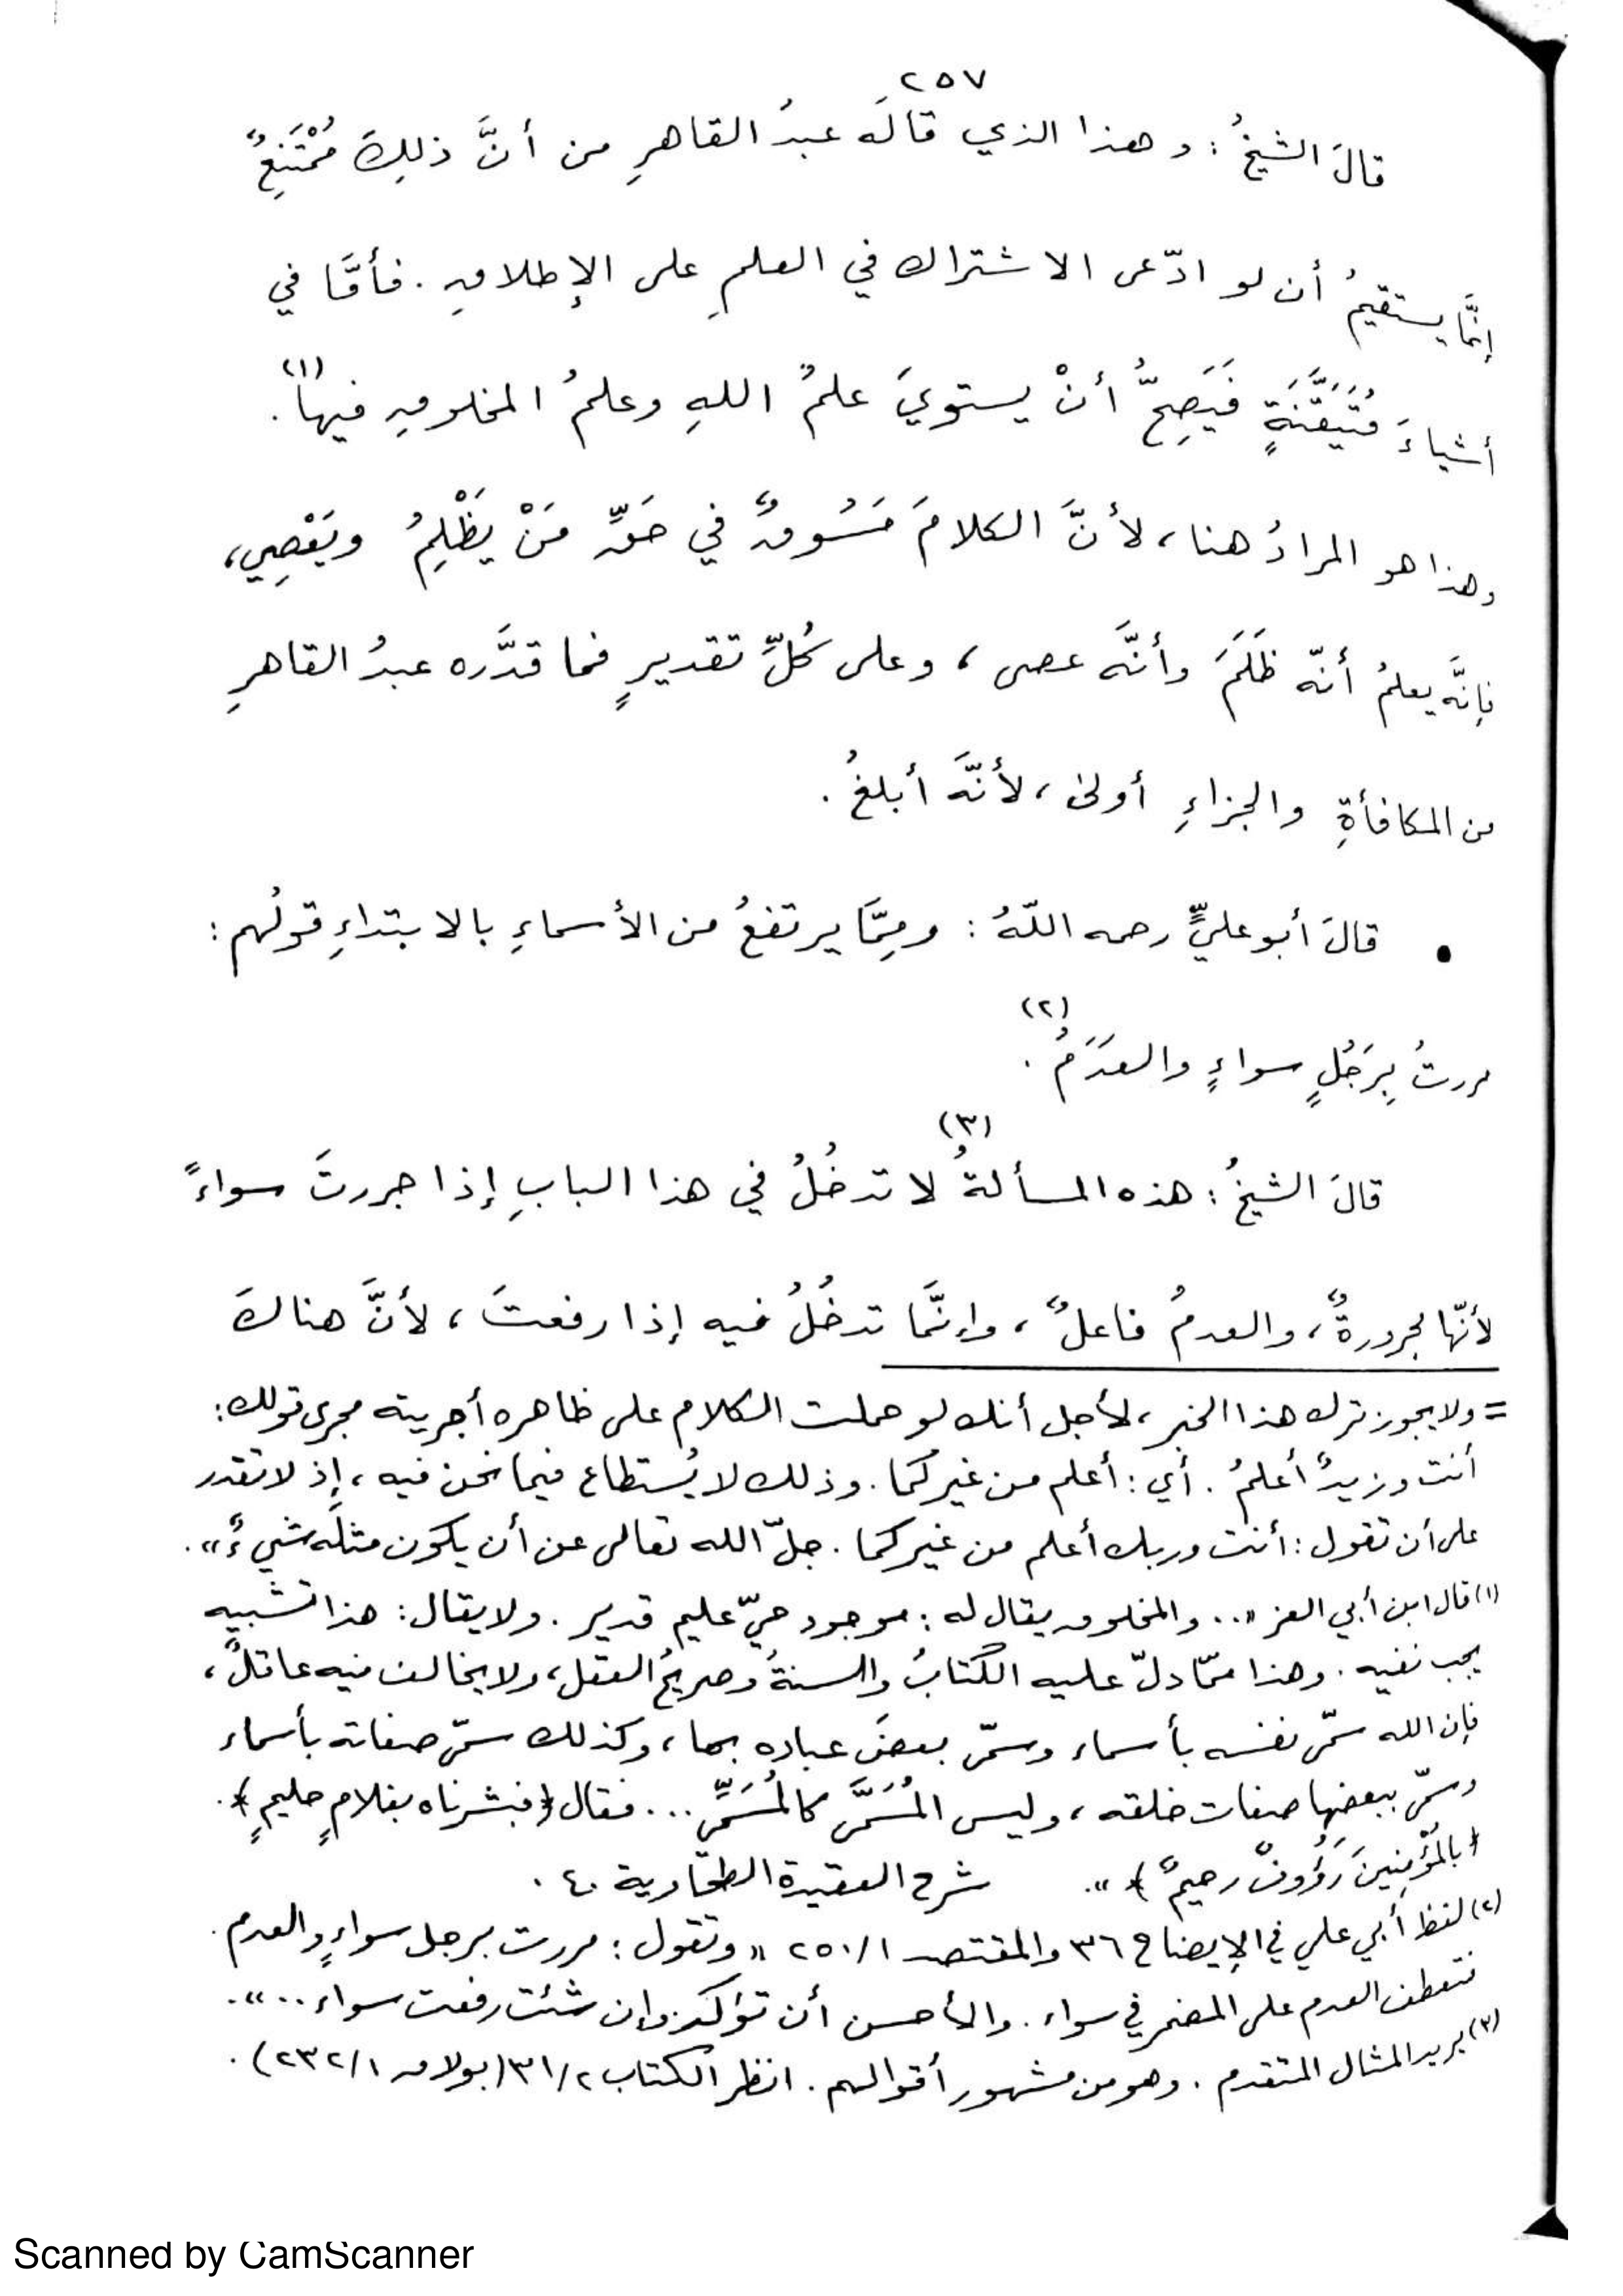 ٢٥٧
قالَ الشيخُ : وهذا الذي قالَه عبدُ القاهرِ من أنَّ ذلِكَ مُمْتَنِعٌ
إنَّما يستقيمُ أن لو ادّعى الاشتراك في العلمِ على الإطلاقِ . فأمَّا في
أشياءَ مُتَيَقَّنَةٍ فَيَصِحُّ أنْ يستويَ علمُ اللهِ وعلمُ المخلوقِ فيها(١) .
وهذا هو المرادُ هنا ، لأنَّ الكلامَ مَسُوقٌ في حَقِّ مَنْ يَظْلِمُ ويَعْصِي ،
فإنَّه يعلمُ أنّه ظَلَمَ وأنَّه عصى ، وعلى كُلِّ تقديرٍ فما قدَّره عبدُ القاهرِ
من المكافأةِ والجزاءِ أولى ، لأنَّه أبلغُ .
• قالَ أبو عليٍّ رحمه اللّهُ : ومِمَّا يرتفعُ من الأسماءِ بالابتداءِ قولُهم :
مررتُ بِرَجُلٍ سواءٍ والعدَمُ(٢) .
قالَ الشيخُ : هذه المسألةُ(٣) لا تدخُلُ في هذا البابِ إذا جررتَ سواءً
لأنّها مجرورةٌ ، والعدمُ فاعلٌ ، وإنَّما تدخُلُ فيه إذا رفعتَ ، لأنَّ هناكَ
= ولا يجوز ترك هذا الخبر ، لأجل أنك لو حملت الكلام على ظاهره أجريته مجرى قولك :
أنت وزيدٌ أعلمُ . أي : أعلم من غيركما . وذلك لا يُستطاع فيما نحن فيه ، إذ لا تقدر
على أن تقول : أنت وربك أعلم من غيركما . جلّ الله تعالى عن أن يكون مثلَه شيءٌ » .
(١) قال ابن أبي العز « .. والمخلوق يقال له : موجود حيّ عليم قدير . ولا يقال : هذا تشبيه
يجب نفيه . وهذا ممّا دلّ عليه الكتابُ والسنةُ وصريحُ العقل ، ولا يخالف فيه عاقلٌ ،
فإن الله سمّى نفسه بأسماء وسمّى بعضَ عباده بها ، وكذلك سمّى صفاته بأسماء
وسمّى ببعضها صفات خلقه ، وليس المُسَمَّى كالمُسَمَّى ... فقال ﴿ فبشرناه بغلامٍ حليمٍ ﴾ .
﴿ بالمُؤْمِنينَ رَؤُوفٌ رحيمٌ ﴾ » . شرح العقيدة الطحّاوية ٤٠ .
(٢) لفظ أبي علي في الإيضاح ٣٦ والمقتصد ٢٥٠/١ « وتقول : مررت برجل سواءٍ والعدم .
فتعطف العدم على المضمر في سواء . والأحسن أن تؤكّد وإن شئت رفعت سواء .. » .
(٣) يريد المثال المتقدم . وهو من مشهور أقوالهم . انظر الكتاب ٣١/٢ (بولاق ٢٣٢/١) .
Scanned by CamScanner